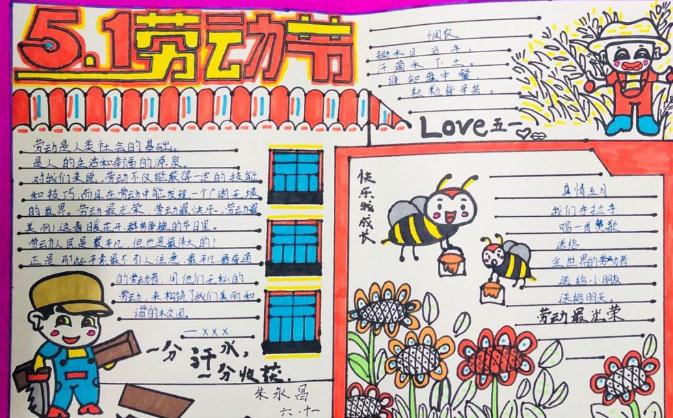 5.1劳动节
悯农
锄禾日当午，
汗滴禾下土。
谁知盘中餐
粒粒皆辛苦。
Love五一
劳动是人类社会的基础。
是人的生活和幸福的源泉。
对我们来说，劳动不仅能获得一定的技能
和技巧，而且在劳动中能发现一个广阔无垠
的世界。劳动最光荣，劳动最快乐，劳动最
美丽！这春暖花开，群鸟争鸣的节日里。
劳动人民是最平凡，但也是最伟大的！
正是那些平素最不引人注意，最平凡，最普通
的劳动者，用他们无私的
劳动，来构筑了我们美丽和
谐的校园
—xxx
一分汗水，
一分收获
朱永昌
六.十一
快乐我成长
真情五月
我们手拉手
唱一首赞歌
送给
全世界的劳动者
送给小朋友
送给明天。
劳动最光荣